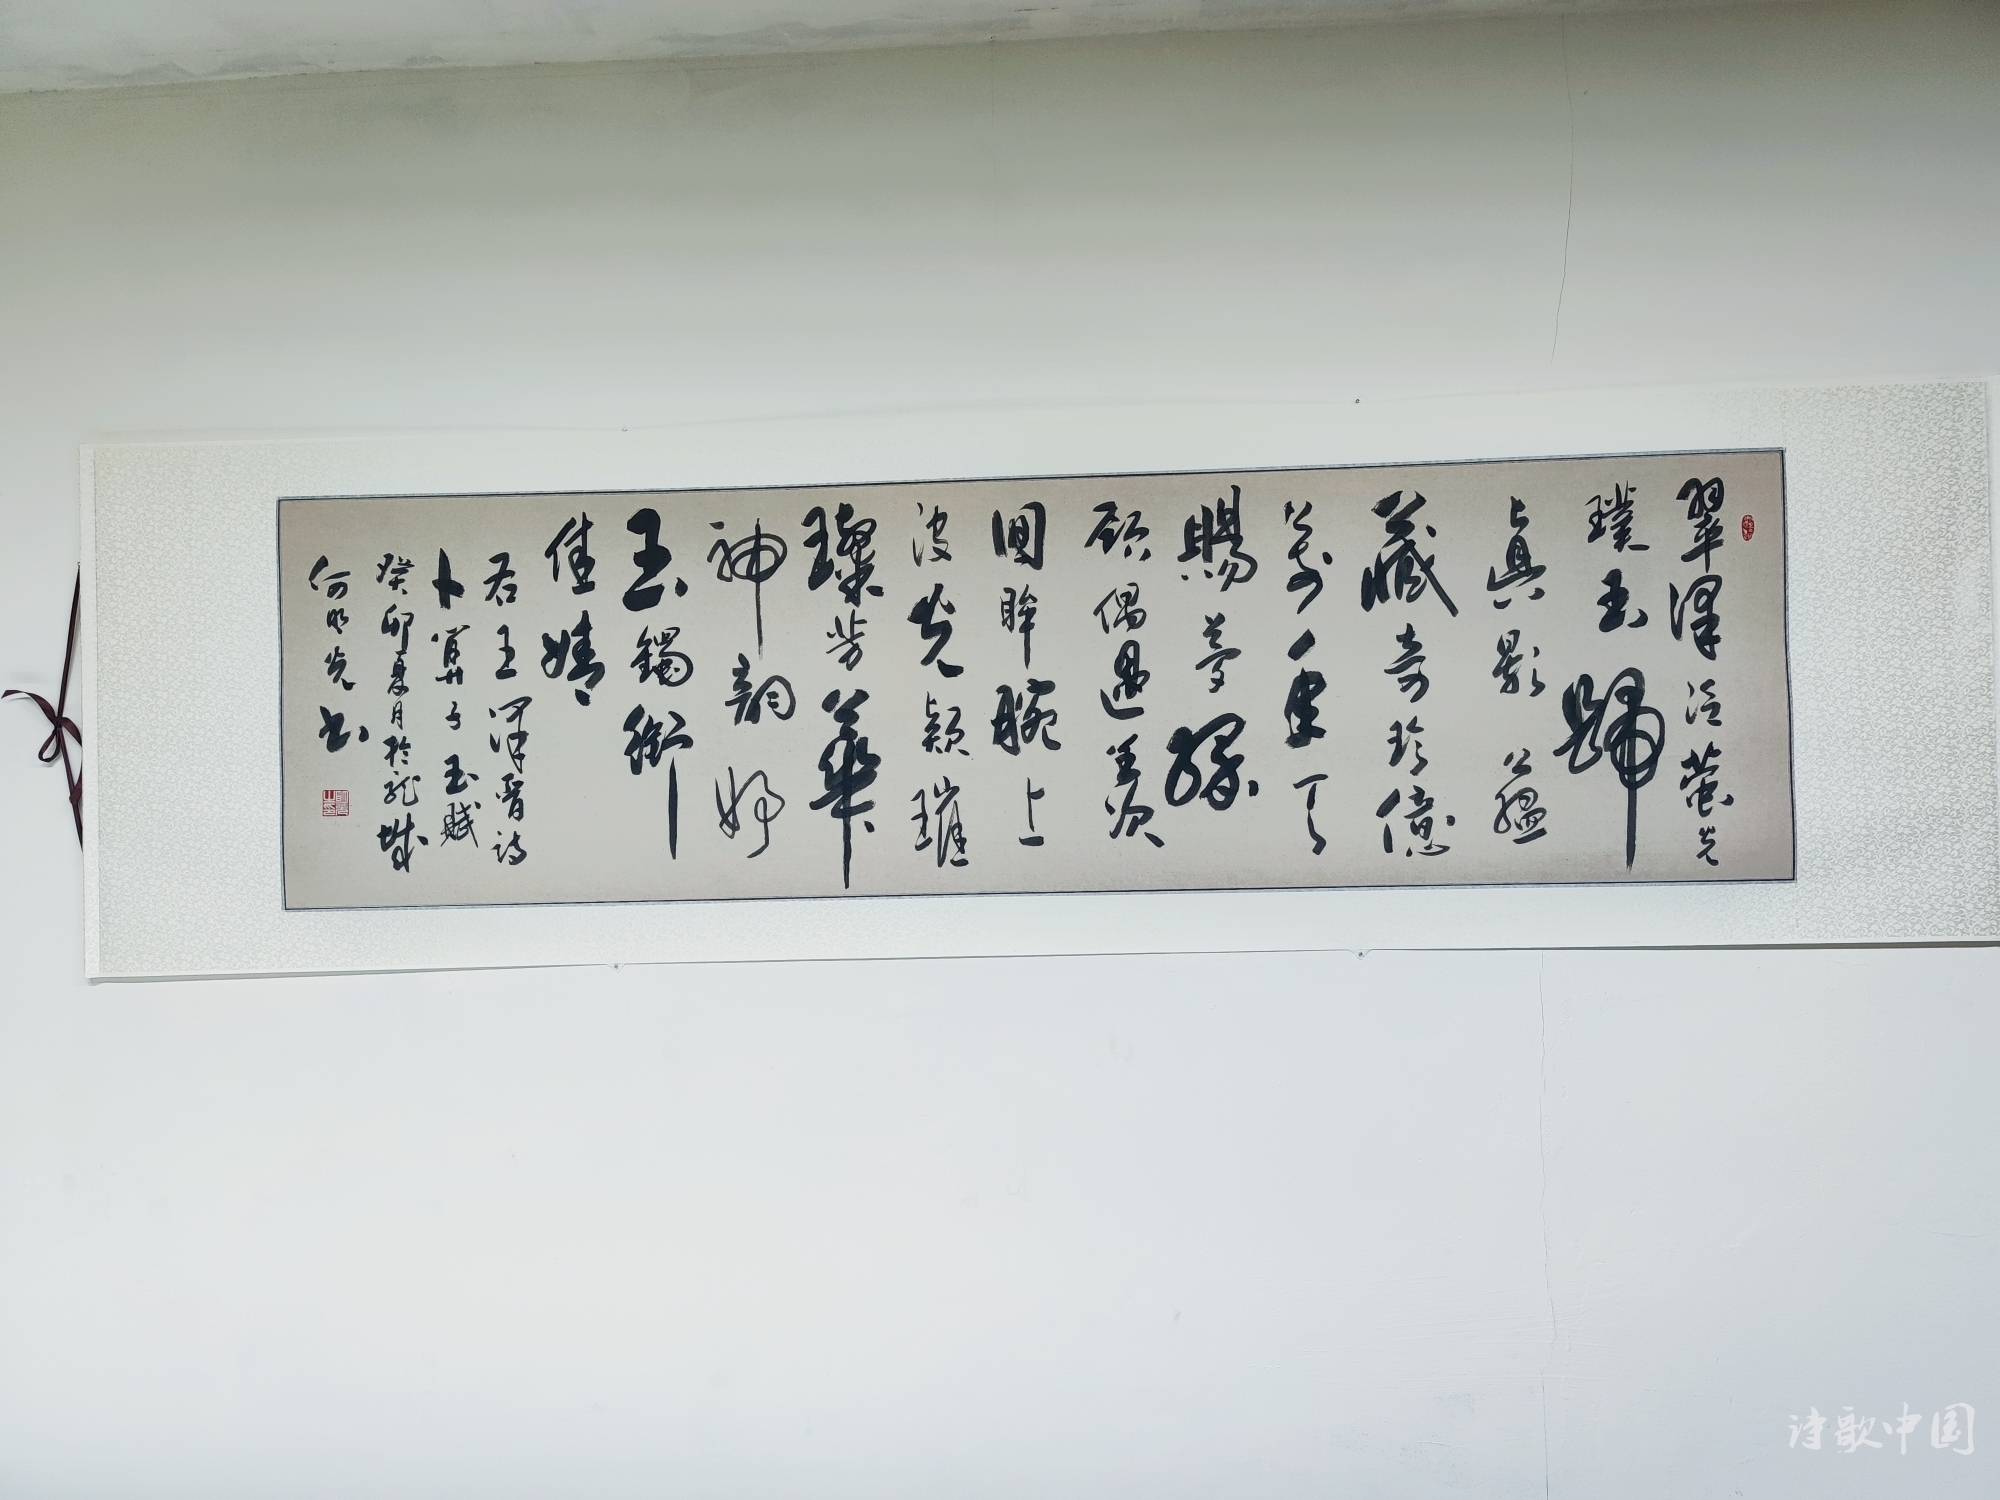 翠澤泛螢光
璞玉歸
真影
藏奇珍億
萬年
賜夢緣
顧偶遇
回眸腕上
波光穎璀
璨芳華
神韻妤
玉鐲
佳婧
君王澤晋詩
卜算子玉賦
癸卯夏月於龍城
何明光书
诗歌中国